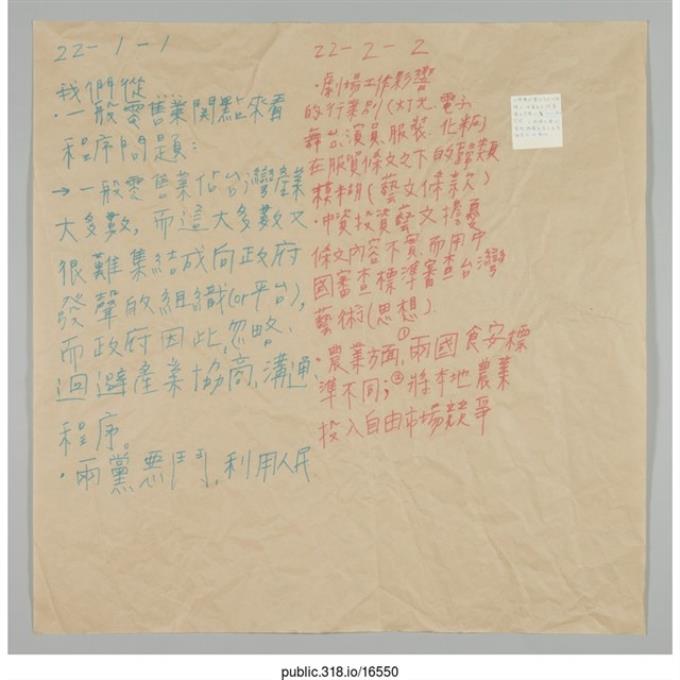 22-1-1
我們從
・一般零售業関點來看
程序問題:
→一般零售業佔台灣產業
大多數,而這大多數又
很難集結成向政府
發聲的組織(or平台),
而政府因此忽略、
迴避產業協商、溝通、
程序。
・兩黨惡鬥,利用人民
22-2-2
・劇場工作影響
的行業別(灯光.電子
舞台.演員.服裝.化粧)
在服貿條文之下的歸類
模糊(藝文條款)
・中資投資藝文擔憂
條文內容不實.而用中
國審查標準審查台灣
藝術(思想).
・農業方面,①兩國食安標
準不同;②將本地農業
投入自由市場競爭
public.318.io/16550